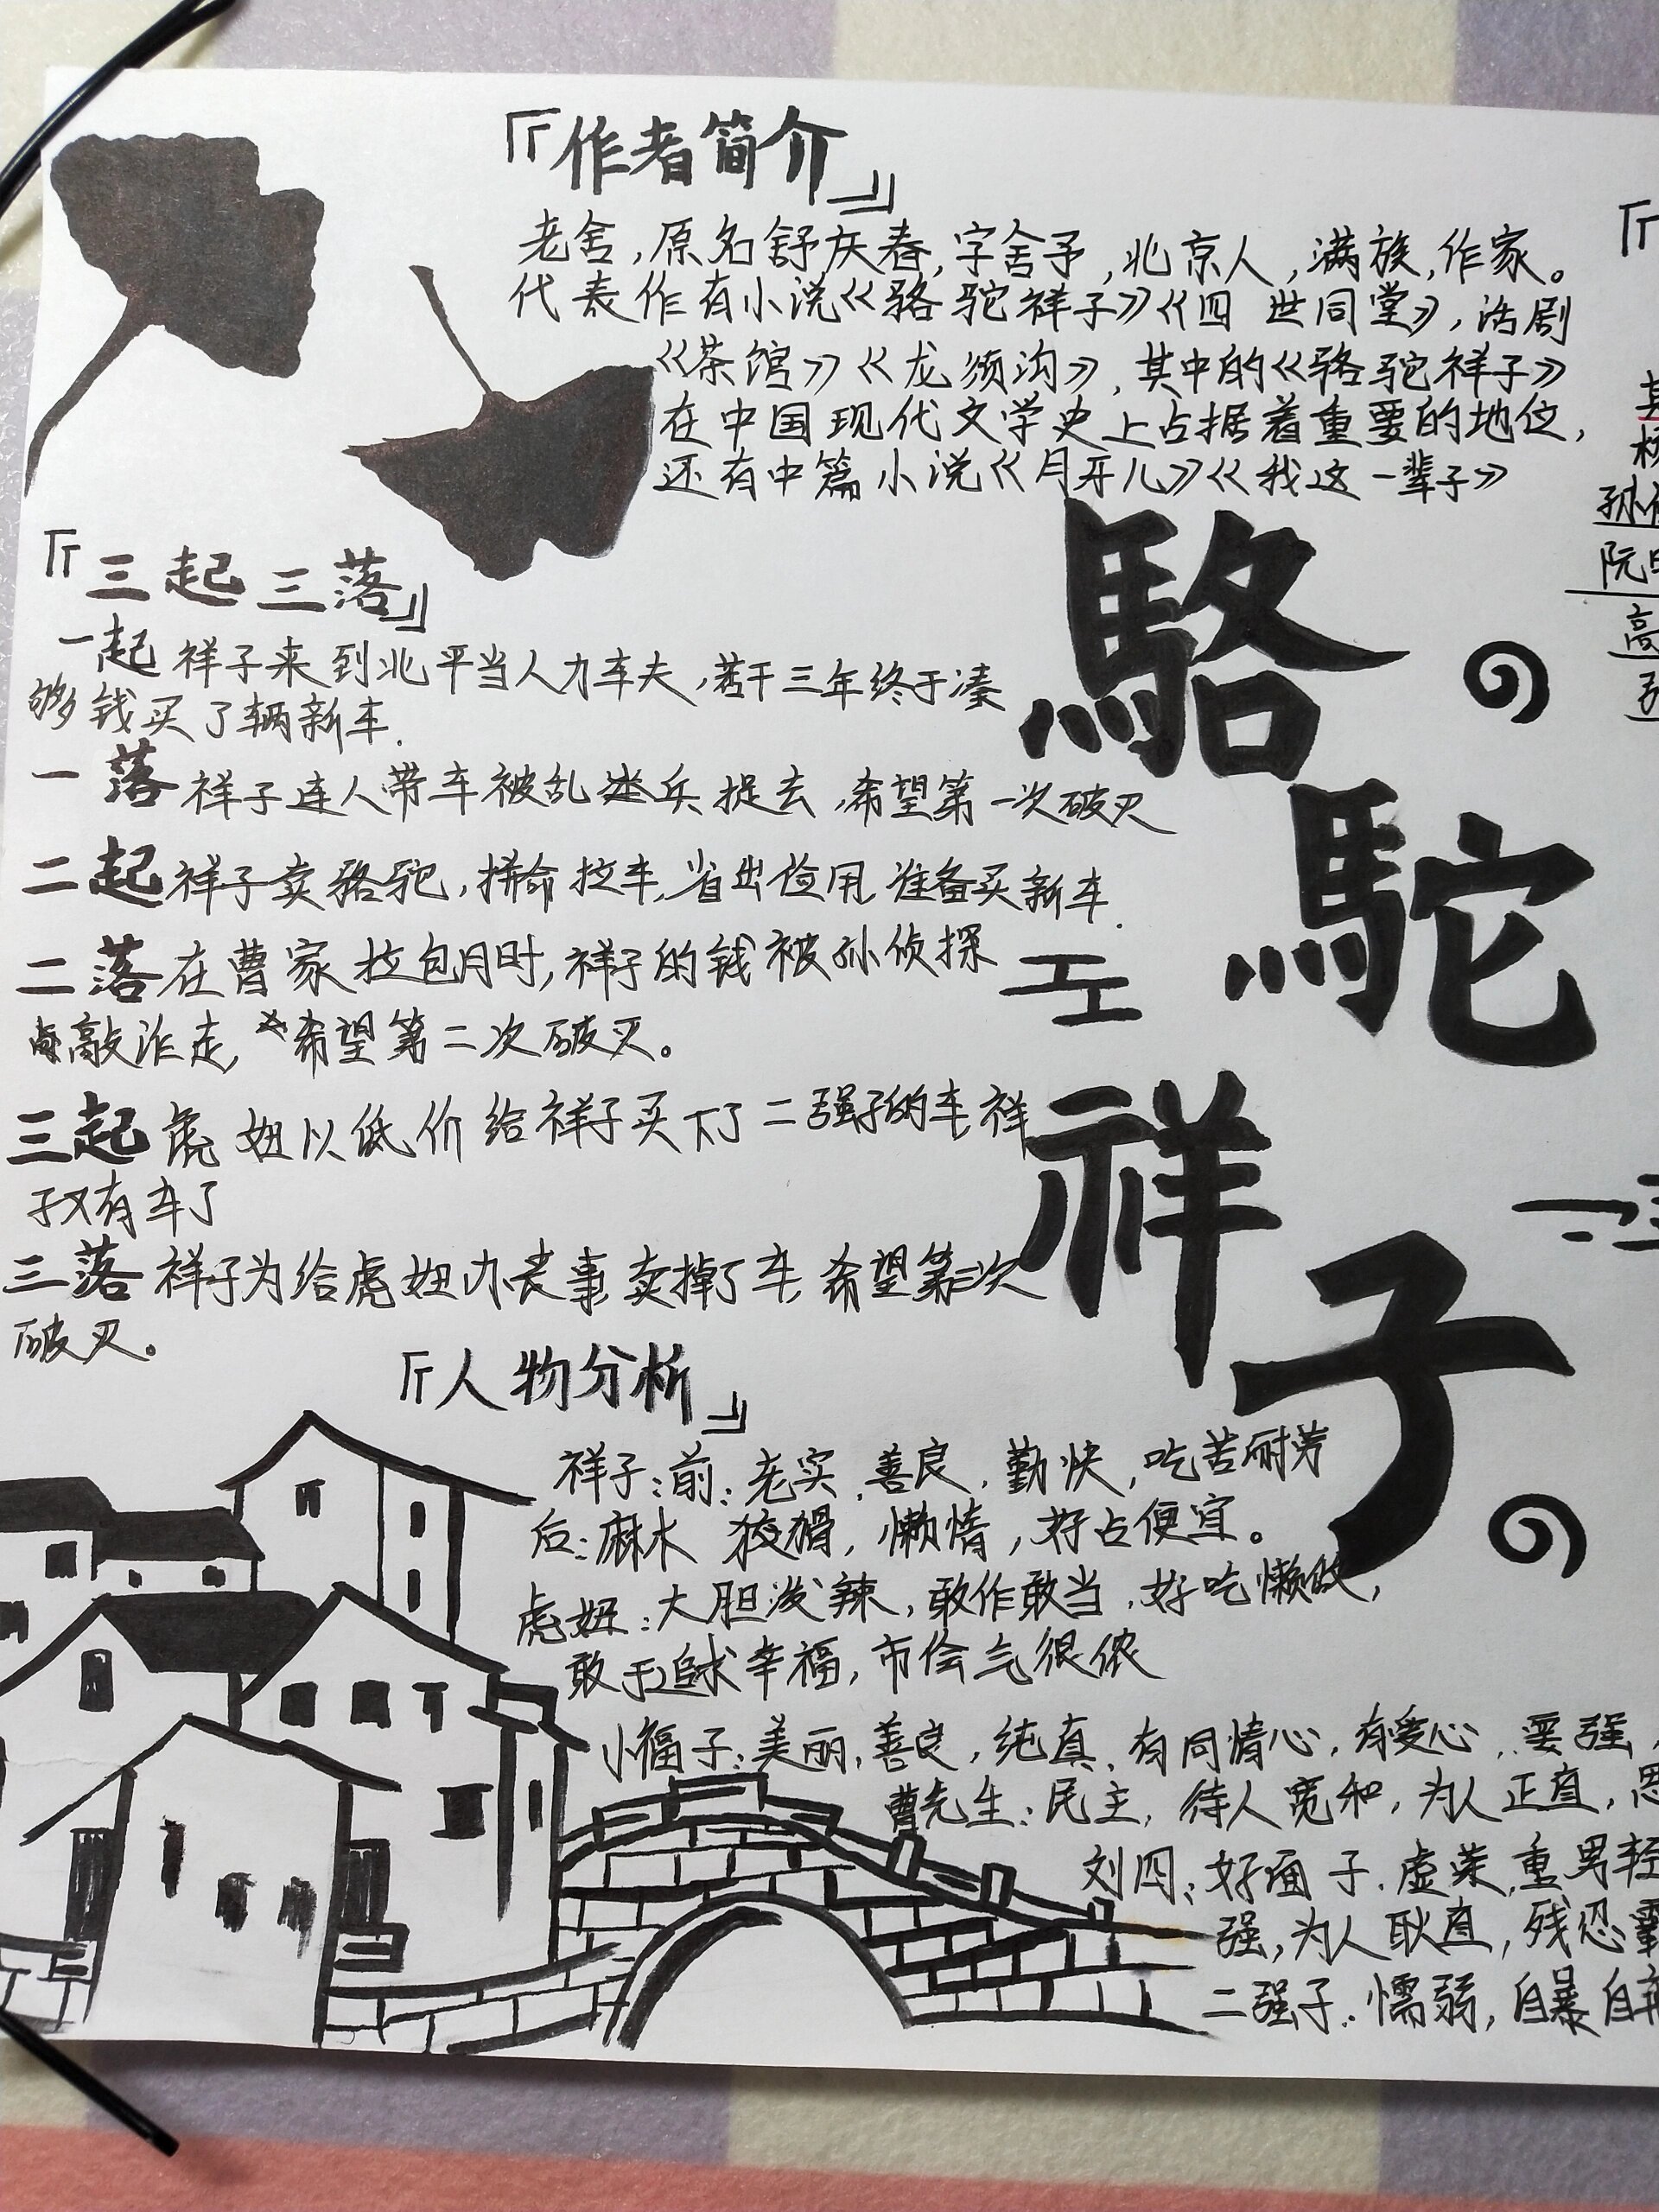 『作者简介』
老舍，原名舒庆春，字舍予，北京人，满族，作家。
代表作有小说《骆驼祥子》《四世同堂》，话剧
《茶馆》《龙须沟》，其中的《骆驼祥子》
在中国现代文学史上占据着重要的地位，
还有中篇小说《月牙儿》《我这一辈子》
駱駝祥子
『三起三落』
一起 祥子来到北平当人力车夫，若干三年终于凑
够钱买了辆新车.
一落 祥子连人带车被乱兵捉去，希望第一次破灭
二起 祥子卖骆驼，拼命拉车，省出俭用 准备买新车.
二落 在曹家拉包月时，祥子的钱被孙侦探
敲诈走，希望第二次破灭。
三起 虎妞以低价给祥子买下了二强子的车，祥
子又有车了
三落 祥子为给虎妞办丧事，卖掉了车，希望第三次
破灭。
『人物分析』
祥子：前：老实，善良，勤快，吃苦耐劳
后：麻木 狡猾，懒惰，好占便宜。
虎妞：大胆泼辣，敢作敢当，好吃懒做，
敢于追求幸福，市侩气很侬
小福子：美丽，善良，纯真，有同情心，有爱心，要强，
曹先生：民主，待人宽和，为人正直，
刘四：好面子，虚荣，重男轻
强，为人耿直，残忍霸
二强子：懦弱，自暴自弃
孙侦
阮明
高